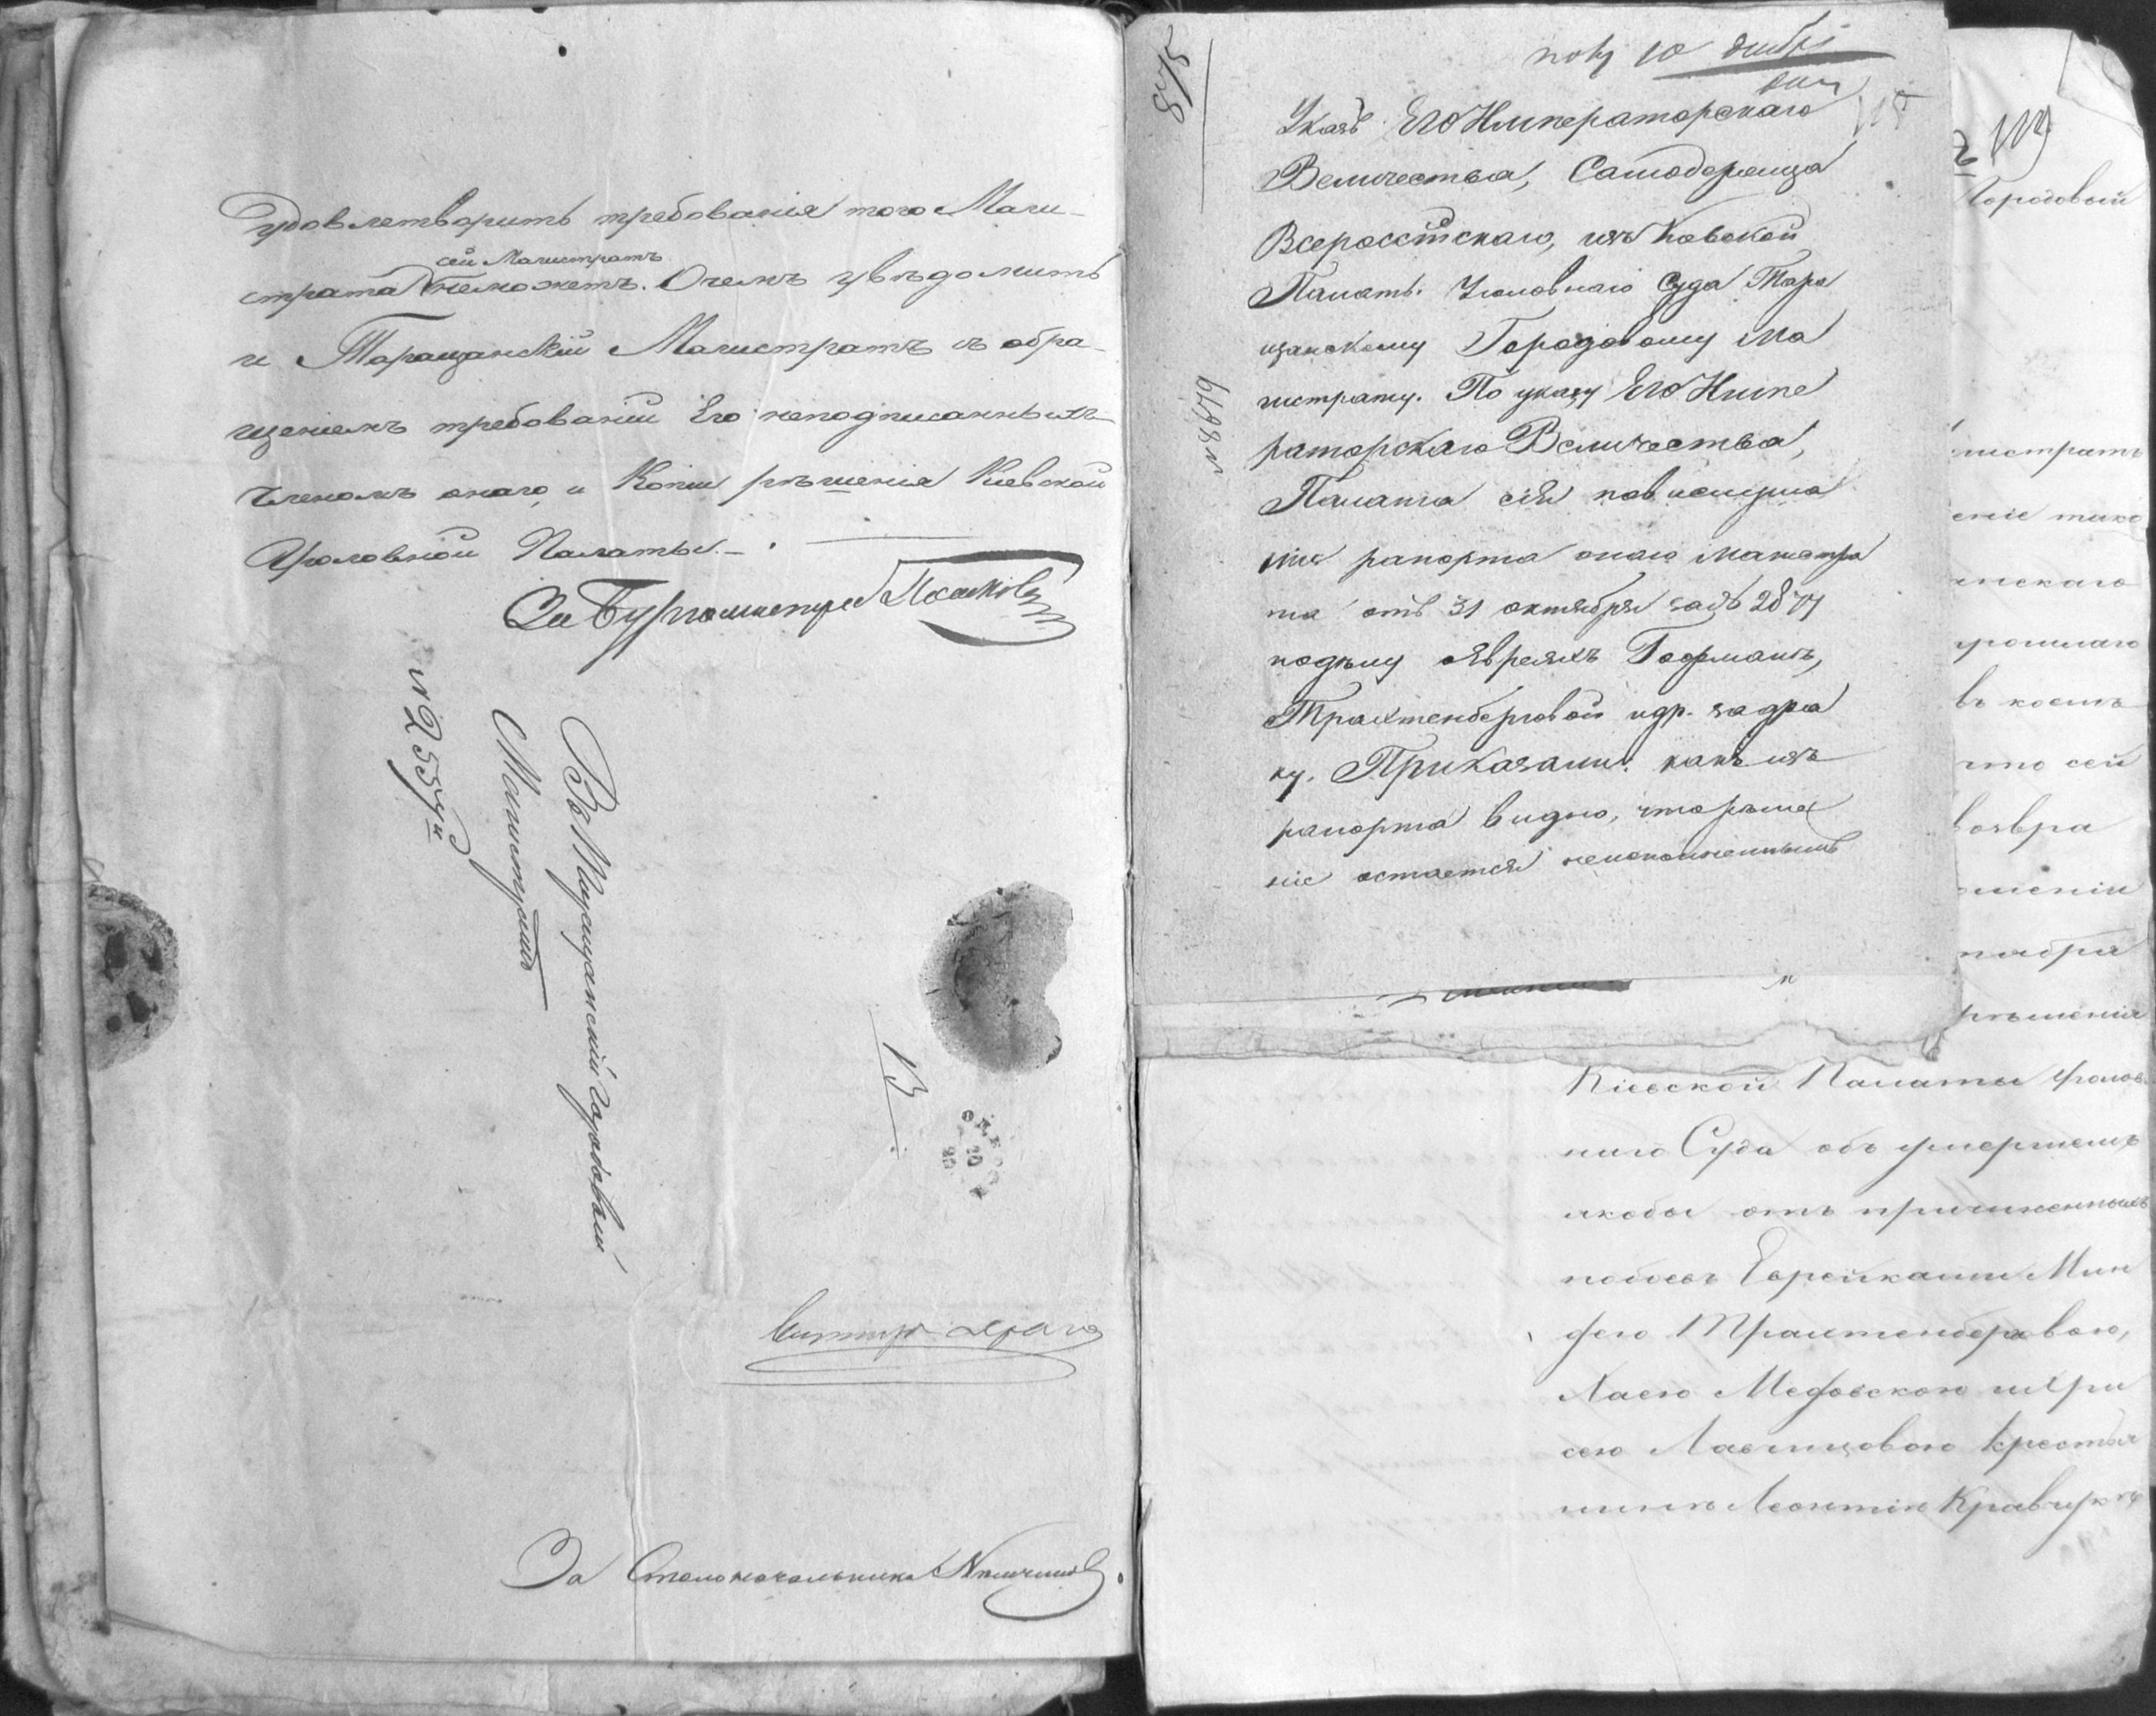 удовлетворить требованія того Маги-
сей Магистратъ
страта неможетъ. О чемъ увѣдомить
и Таращанскій Магистратъ съ обра-
щеніемъ требованій Его неподписанныхъ
Членомъ онаго и Копіи рѣшенія Кіевской
Уголовной Палаты. —
За Бургомистра
№ 2554
Въ Таращанскій Городовой
Магистратъ
13
ОДЕССА
20
За Столоначальника
875
10 декабря
Указъ Его Императорскаго
Величества, Самодержца
Всероссійскаго, изъ Кіевской
Палаты Уголовнаго Суда Тара
щанскому Городовому Ма
гистрату. По указу Его Импе
раторскаго Величества,
Палата сія по выслуша
ніи рапорта онаго Магистра
та отъ 31 октября за № 2877
по дѣлу о Евреяхъ Гофманъ,
Трахтенберговой и др. за дра
ку. Приказали: какъ изъ
рапорта видно, что рѣше
ніе остается неисполненнымъ
119
Городовой
гистратъ
еніе
нскаго
прошлаго
въ коемъ
что сей
возвра
шеніи
ноября
рѣшенія
Кіевской Палаты Уголов
наго Суда объ умершемъ
якобы отъ причиненныхъ
побоевъ Еврейками Мин
дею Трахтенберговою,
Хаею Медовскою и Хри
сею крестья
нинѣ Леонтіи Кравчук